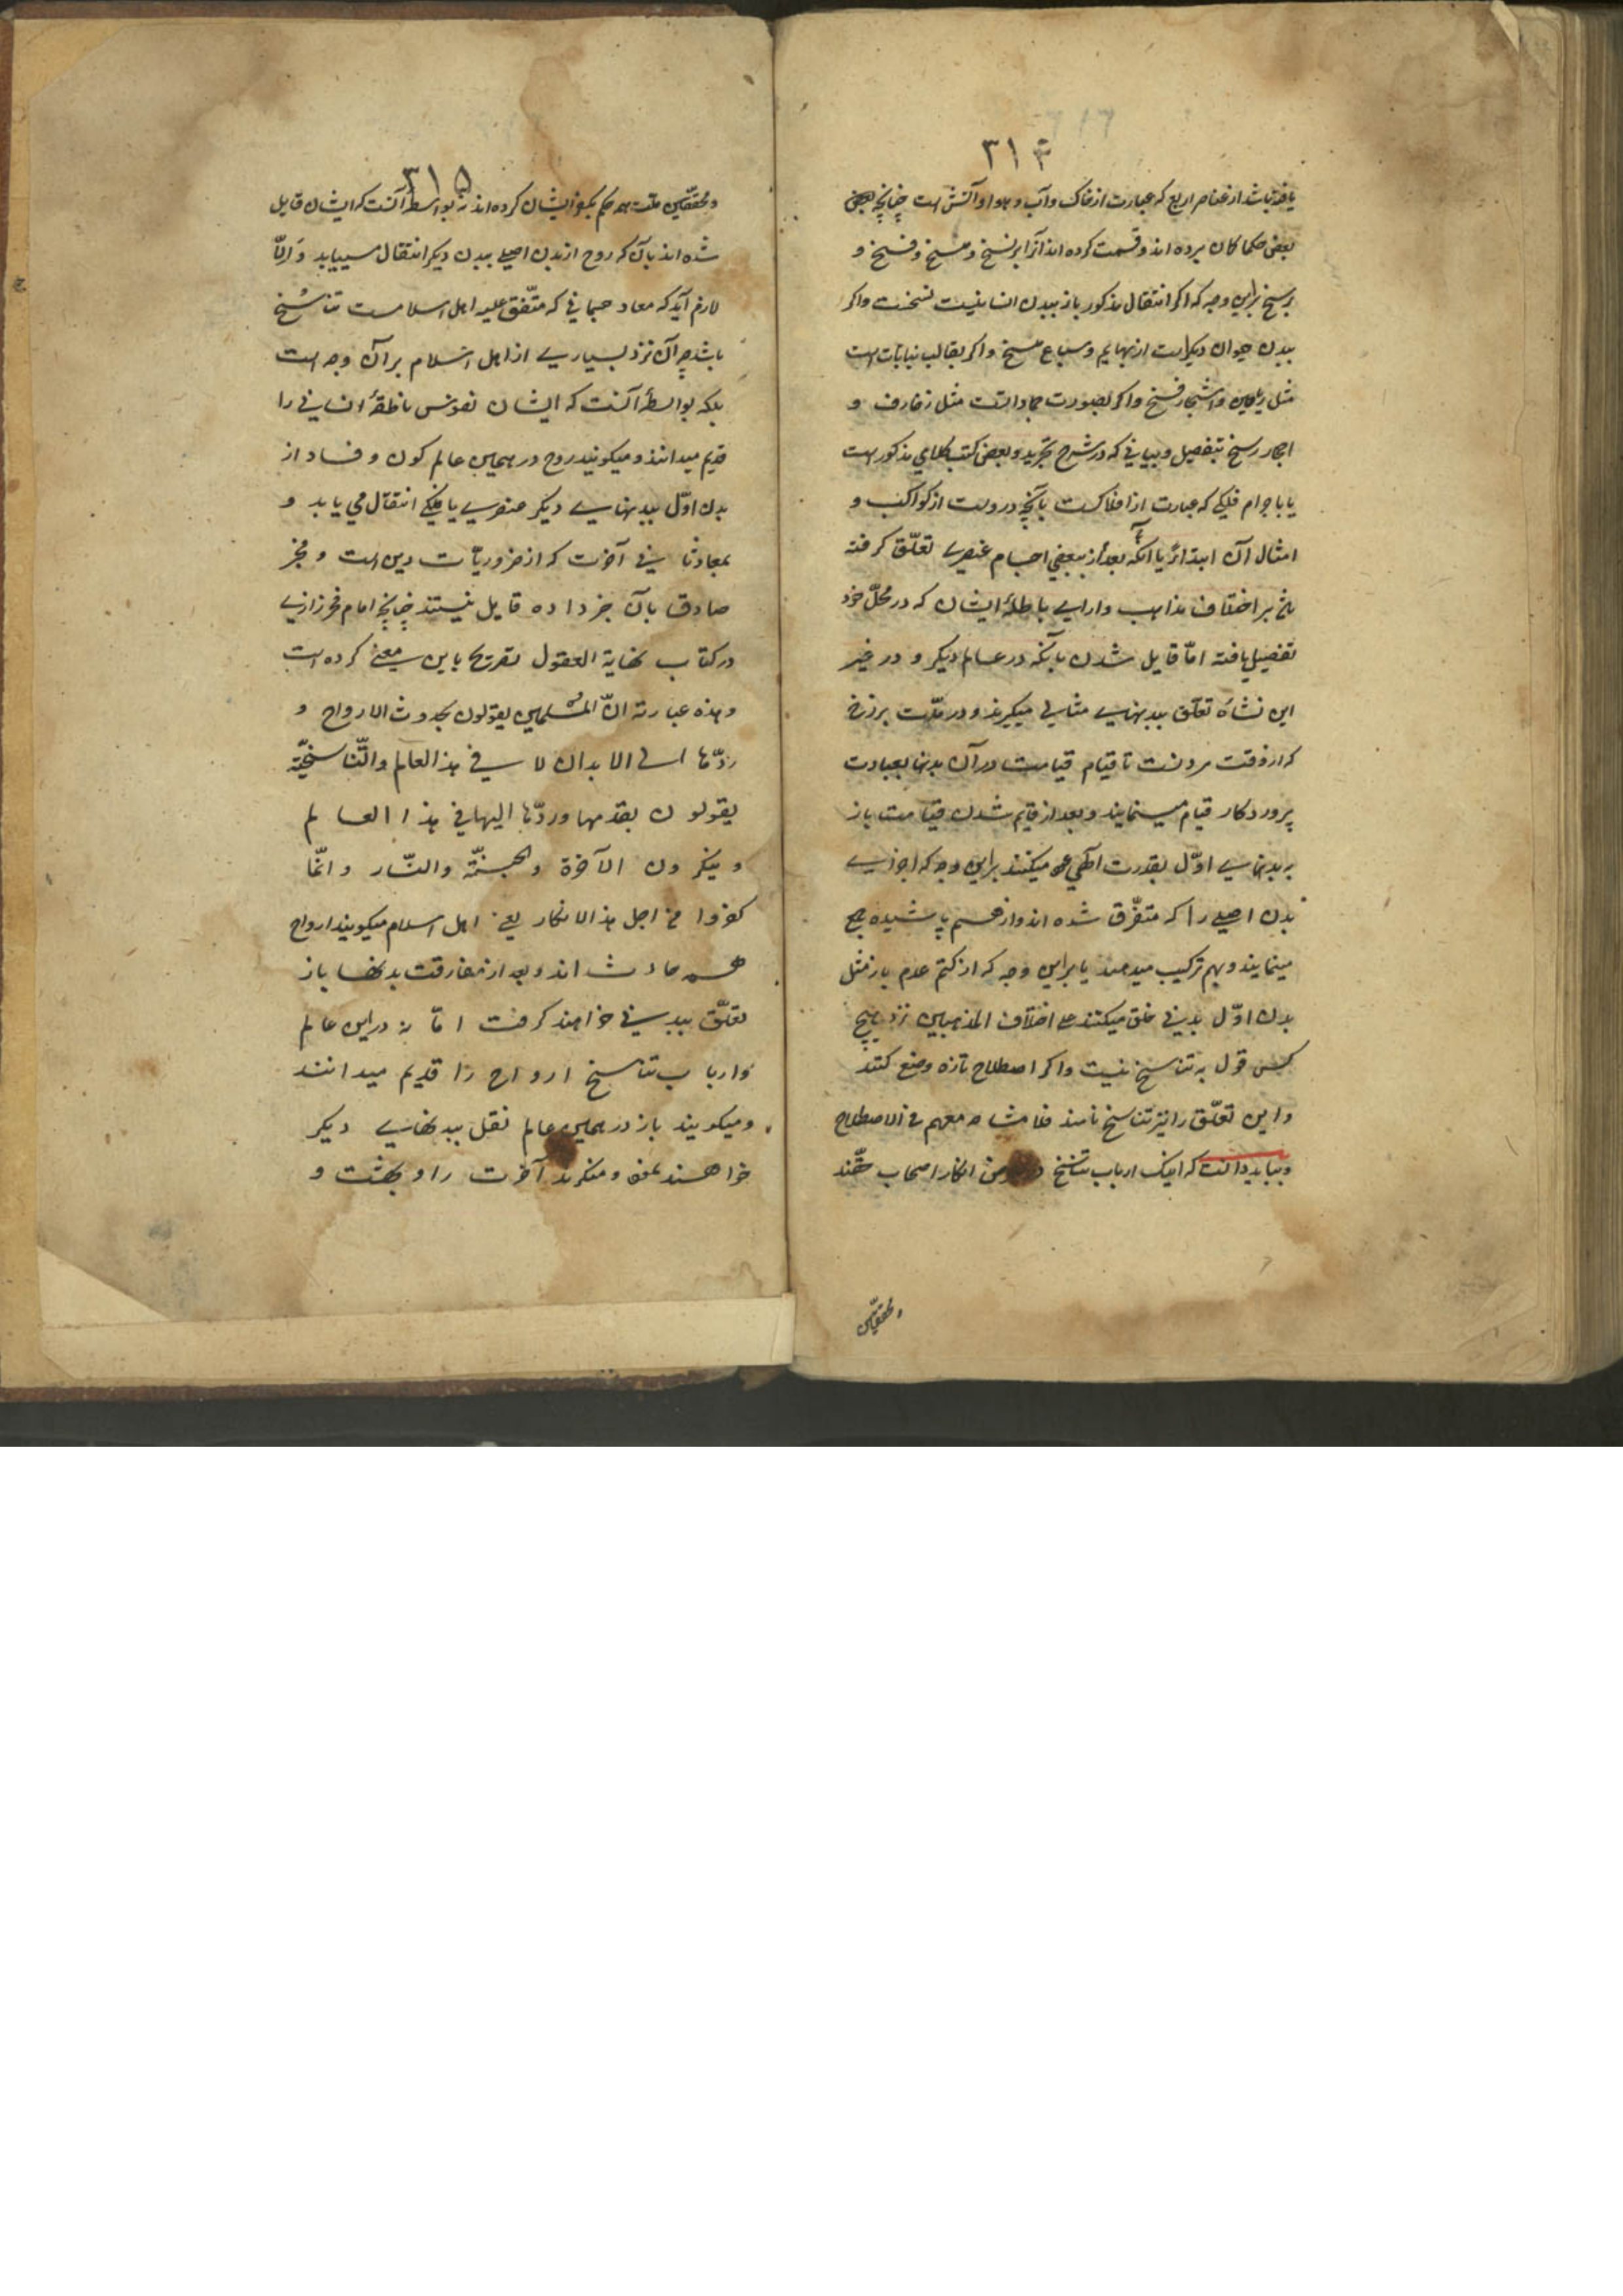 ۳۱۴
یافته باشد از عناصر اربع که عبارت از خاک و آب و هوا و آتش است چنانچه
بعضی حکما کان برده اند و قسمت کرده اند آنرا بر نسخ و مسخ و فسخ و
رسخ براین وجه که اکر انتقال مذکور باز ببدن انسانیست نسخست واکر
ببدن حیوان دیکر است از بهایم و سباع مسخ واکر بقالب نباتات است
مثل ریاحین واشجار فسخ واکر بصورت جمادات مثل زخارف و
احجار رسخ بتفصیل و بیانی که در شرح تجرید و بعضی کتب کلامی مذکور است
یا باجرام فلکی که عبارت از افلاکست یا آنچه دروست از کواکب و
امثال آن ابتداءً یا آنکه بعد از ببعضی اجسام عنصری تعلّق کرفته
بنا بر اختلاف مذاهب وارای باطلهٔ ایشان که در محلّ خود
تفصیل یافته امّا قایل شدن بآنکه در عالم دیکر و در غیر
این نشاه تعلّق ببدنهای مثالی میکیرند و در مدّت برزخ
که از وقت مردنست تا قیام قیامت در آن بدنها بعبادت
پروردکار قیام مینمایند و بعد از قایم شدن قیامت باز
ببدنهای اوّل بقدرت آلهی عود میکنند براین وجه که اجزای
بدن اصلی را که متفرّق شده اند واز هم پاشیده جمع
مینمایند و بهم ترکیب میدهند یا براین وجه که از کتم عدم باز مثل
بدن اوّل بدنی خلق میکنند علی اختلاف المذهبین نزد هیچ
کس قول به تناسخ نیست واکر اصطلاح تازه وضع کنند
واین تعلّق را نیز تناسخ نامند فلا مشاحه معهم فی الاصطلاح
و بباید دانست که اینک ارباب تناسخ انکار اصحاب
و محققین
۳۱۵
و محققین ملت همه حکم بکفر ایشان کرده اند نه بواسطهٔ آنست که ایشان قایل
شده اند بآن که روح از بدن اصلی ببدن دیکر انتقال مییابد وَالّا
لازم آید که معاد جسمانی که متّفق علیه اهل اسلامست تناسُخ
باشد چه آن نزد بسیاری از اهل اسلام برآن وجه است
بلکه بواسطهٔ آنست که ایشان نفوس ناطقهٔ انسانی را
قدیم میدانند و میکویند روح در همین عالم کون و فساد از
بدن اوّل ببدنهای دیکر عنصری یا فلکی انتقال می یابد و
بمعاد در آخرت که از ضروریّات دین است و مخبر
صادق بآن خبر داده قایل نیستند چنانچه امام فخر رازی
در کتاب نهایة العقول تصریح باین معنی کرده است
و هذه عبارته انّ المُسْلمین یقولون بحدوث الارواح و
ردّها الی الابدان لا فی هذا العالم والتّناسخیّة
یقولون بقدمها وردّها الیها فی هذا العالم
و ینکرون الآخرة والجنّة والنّار و انّما
کفروا من اجل هذا الانکار یعنی اهل اسلام میکویند ارواح
همه حادث اند و بعد از مفارقت بدنها باز
تعلّق ببدنی خواهند کرفت امّا نه در این عالم
وارباب تناسخ ارواح را قدیم میدانند
و میکویند باز در همین عالم نقل ببدنهای دیکر
خواهند نمود و منکرند آخرت را و بهشت و